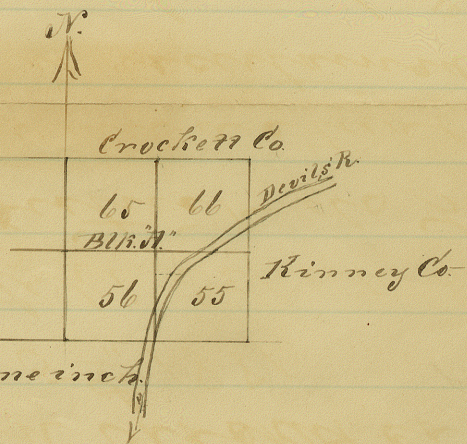 N.
Crockett Co.
Devils R.
65 66
Blk. "A."
Kinney Co.
56 55
ne inch.